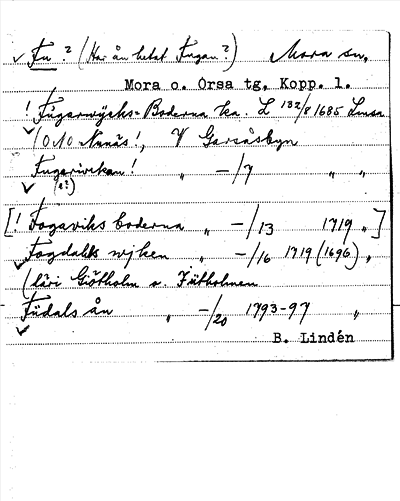 Fu? (Har ån hetat Fugan?) Mora sn,
Mora o. Orsa tg, Kopp. l.
! Fugarwijcks=Boderna ka. L 132/8 1685 Lmsa
(ONO Nusnäs!, V Garsåsbyn
Fugarivikan! " -/7 " "
(e?)
[! Fogaviks boderna " -/13 1719 "]
Fogdalls wjken " -/16 1719 (1696) "
(täri Giötholm o. Jutholmen
Fudals ån " -/20 1793-97 "
B. Lindén